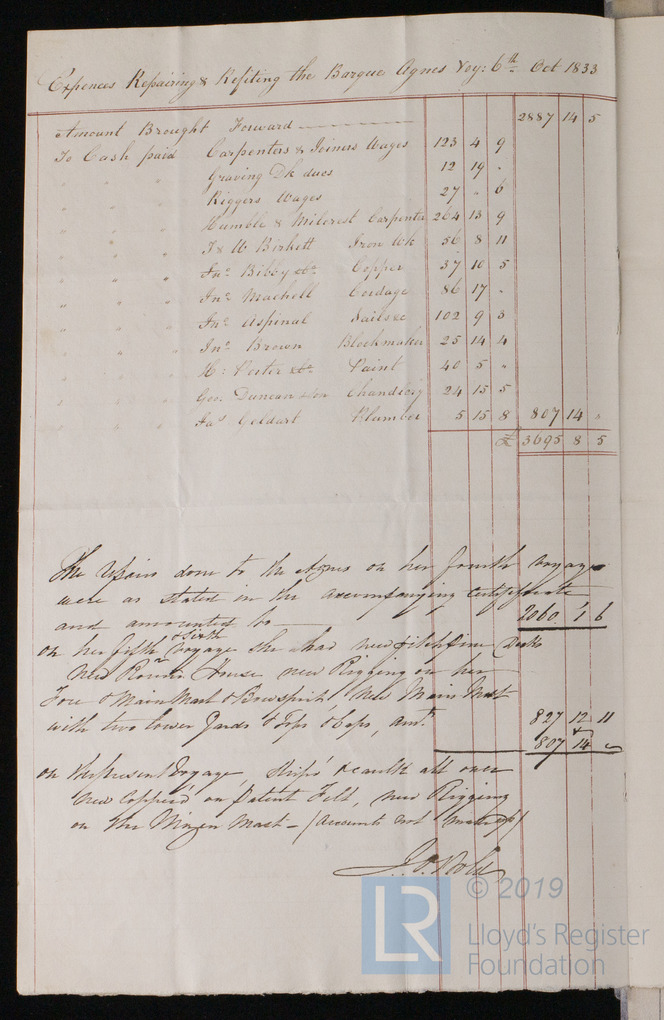 Expences Repairing & Refiting the Barque Agnes Voy: 6th Oct 1833
Amount Brought Forward 2887 14 5
To Cash paid Carpenters & Joiners Wages 123 4 9
" " " " Graving Dk dues 12 19 "
" " " " Riggers Wages 27 " 6
" " " " Humble & Milcrest Carpenter 264 13 9
" " " " T & W Birkett Iron Wk 56 8 11
" " " " Jno Bibby &Co Copper 37 10 5
" " " " Jno Machell Cordage 86 17 "
" " " " Jno Aspinal Sails &c 102 9 3
" " " " Jno Brown Blockmaker 25 14 4
" " " " H: Foster &Co Paint 40 5 "
" " " " Geo. Duncan & Son Chandlery 24 15 5
" " " " Jas Geldart Plumber 5 15 8 807 14 "
£ 3695 8 5
The repairs done to the Agnes on her fourth Voyage
were as stated in the accompanying Certificate
and amounted to 2060 1 6
on her fifth & Sixth Voyage she had new pitch pine Decks
New Round House new Rigging on her
Fore & Main Mast & Bowsprit, New Main Mast
with two lower Yards & Tops & Caps, amt 827 12 11
& 807 14 "
on the present Voyage, strip'd & caulk all over
New Copper'd on Patent Felt, new Rigging
on the Mizen Mast - (Accounts not made up)
© 2019
LR
Lloyd's Register
Foundation